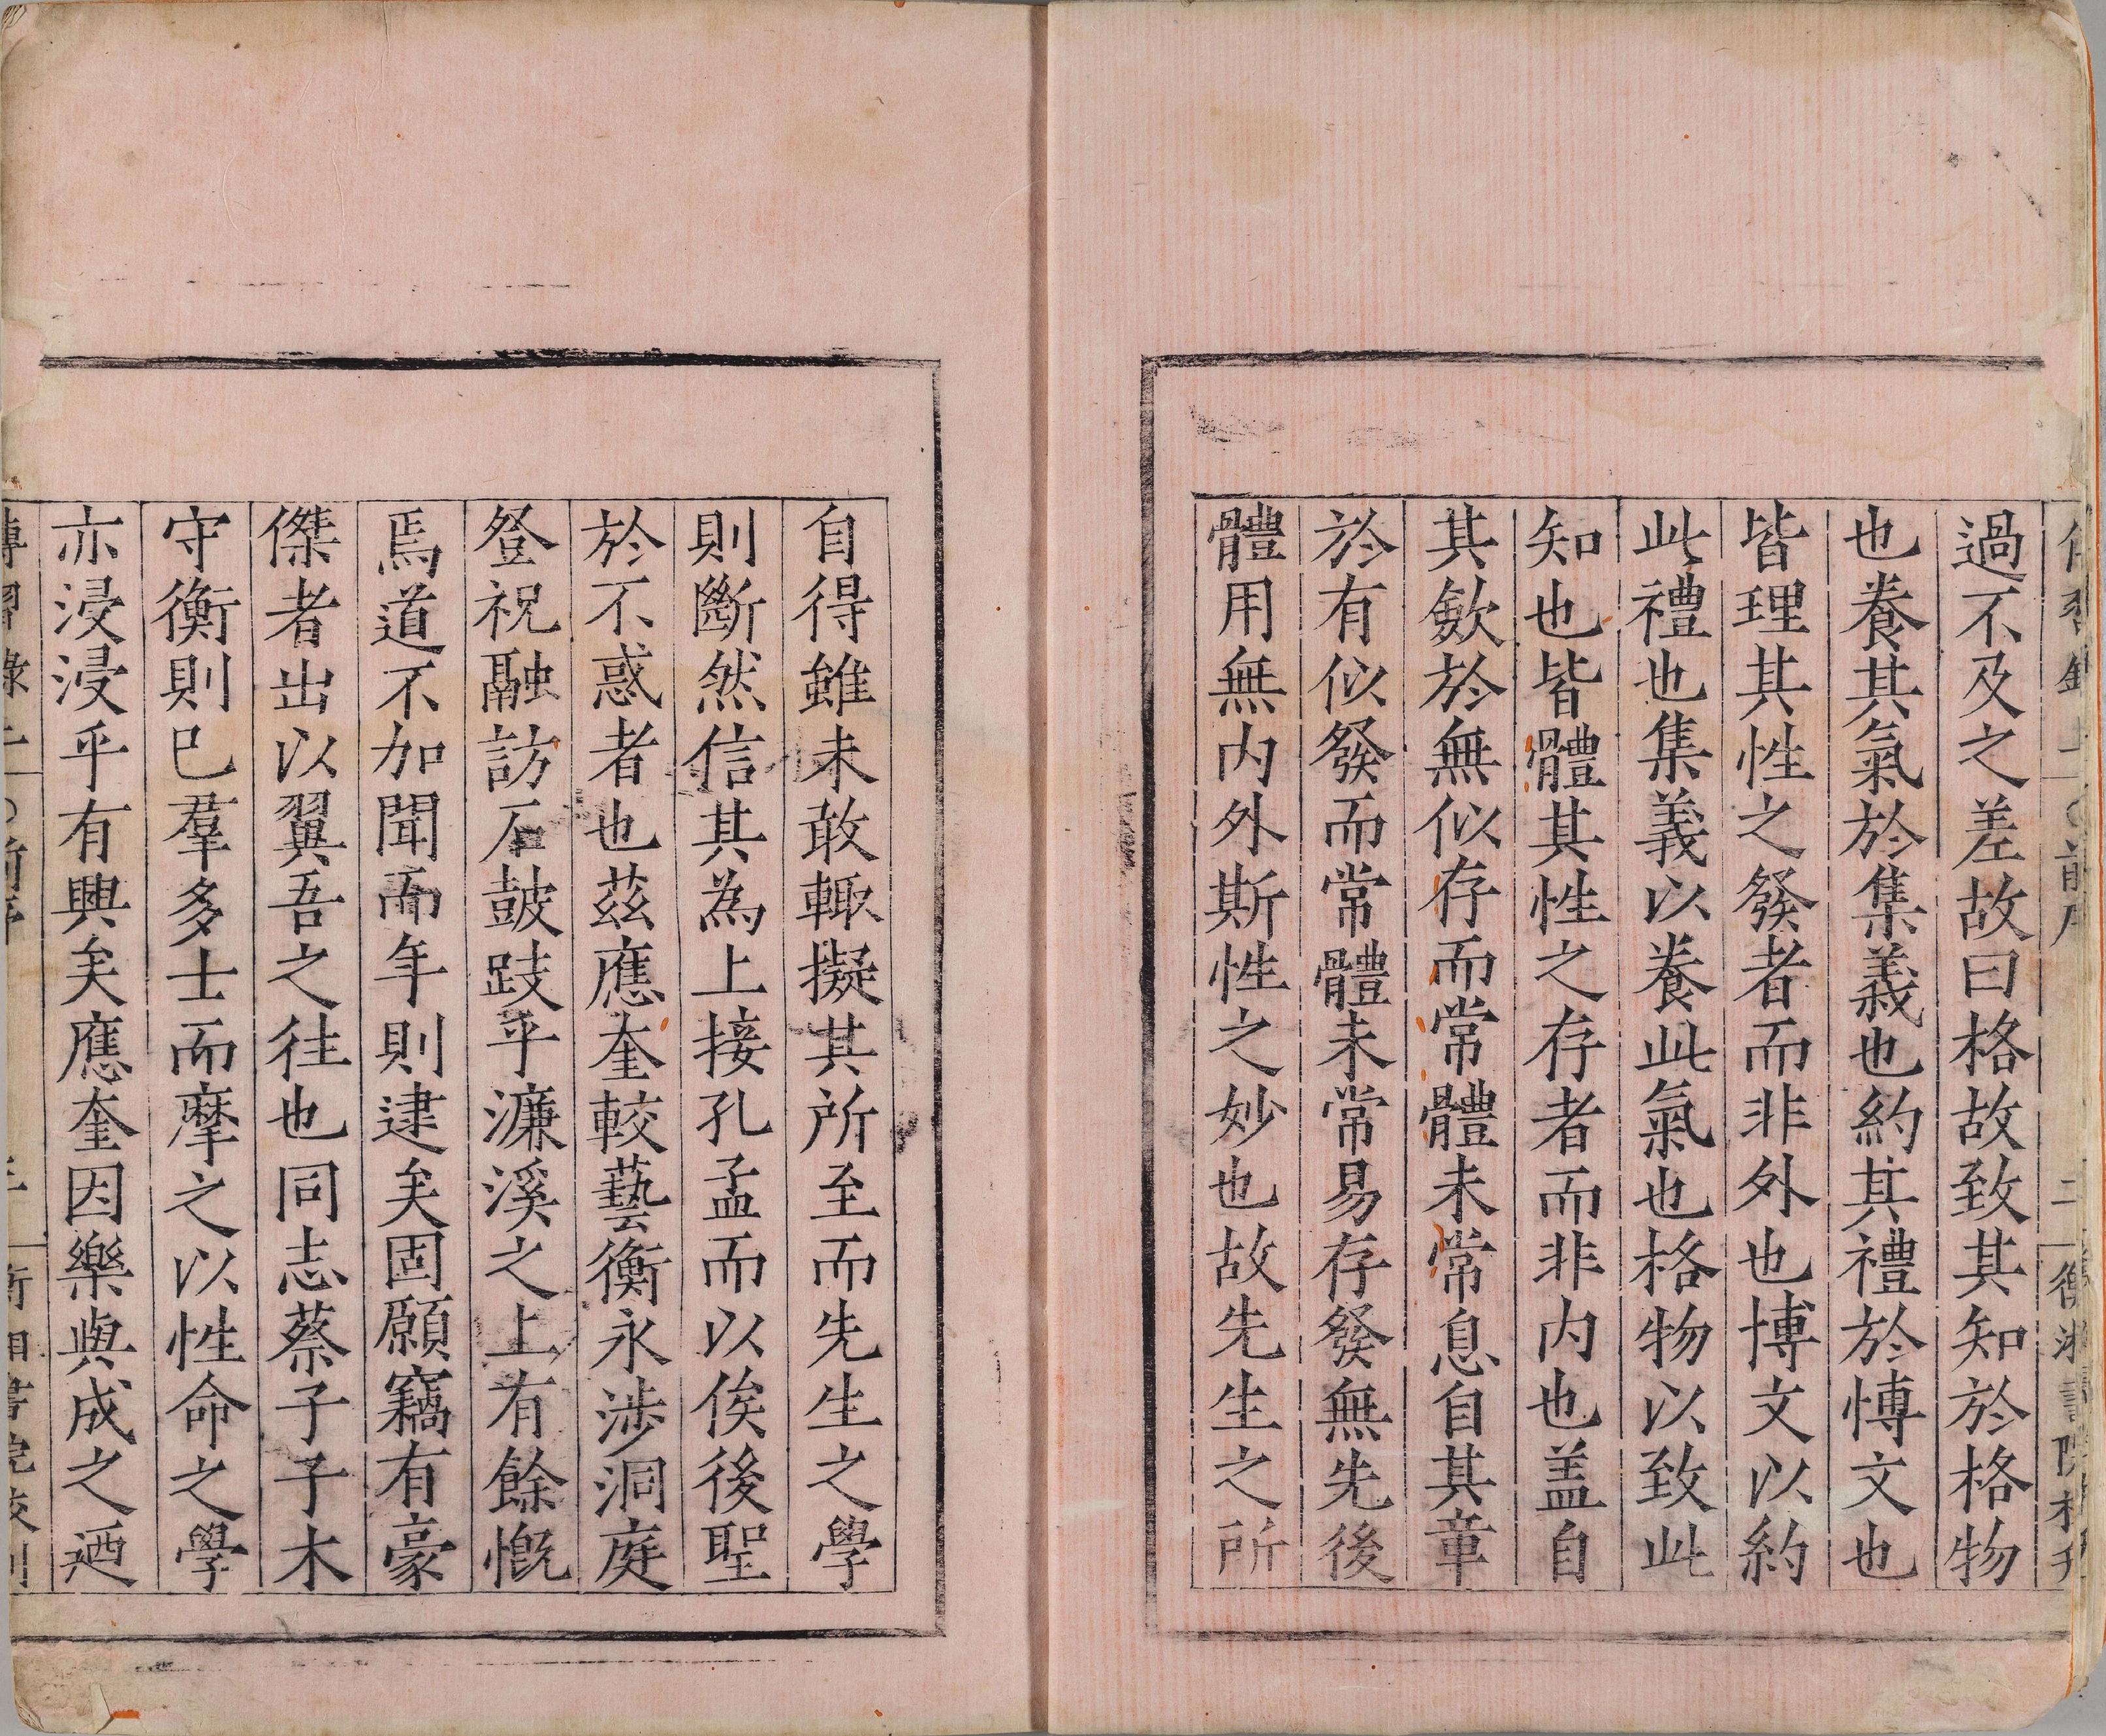 過不及之差故曰格故致其知於格物
也養其氣於集義也約其禮於博文也
皆理其性之發者而非外也博文以約
此禮也集義以養此氣也格物以致此
知也皆體其性之存者而非内也盖自
其斂於無似存而常體未常息自其章
於有似發而常體未常易存發無先後
體用無内外斯性之妙也故先生之所
自得雖未敢輙擬其所至而先生之學
則斷然信其為上接孔孟而以俟後聖
於不惑者也茲應奎較藝衡永涉洞庭
登祝融訪石鼓跂乎濂溪之上有餘慨
焉道不加聞而年則逮矣固願竊有豪
傑者出以翼吾之徃也同志蔡子子木
守衡則已羣多士而摩之以性命之學
亦浸浸乎有興矣應奎因樂與成之廼